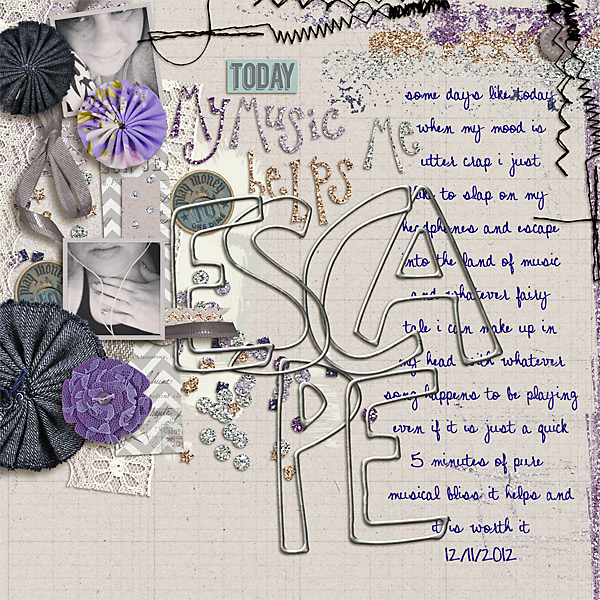 TODAY
My Music
helps Me
ESCA
PE
some days like today
when my mood is
utter crap i just
to slap on my
headphones and escape
into the land of music
and whatever fairy
tale i can make up in
my head with whatever
song happens to be playing
even if it is just a quick
5 minutes of pure
musical bliss it helps and
it is worth it
12/11/2012
play money
10
play money